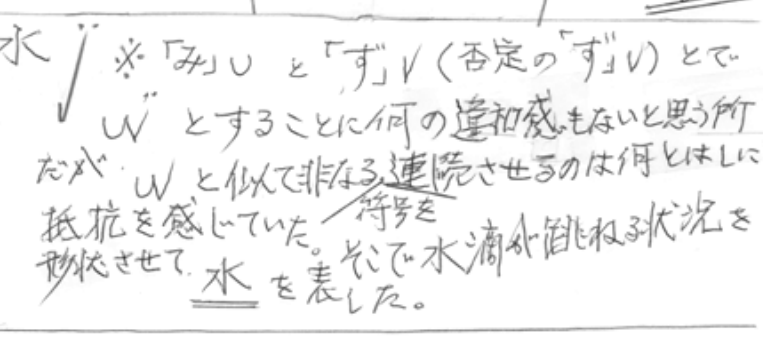 水 ※「み」∪ と「ず」V（否定の「ず」V）とで
とすることに何の違和感もないと思う所
だが と似て非なる連続させるのは何とはしに
符号を
抵抗を感じていた。そこで水滴が跳ねる状況を
形状させて 水 を表した。